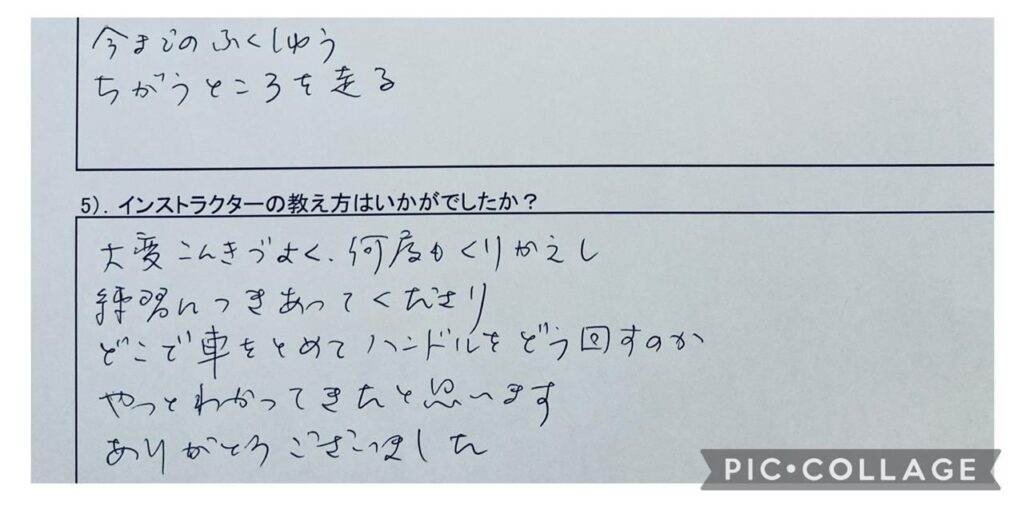 今までのふくしゅう
ちがうところを走る
5）．インストラクターの教え方はいかがでしたか？
大変こんきづよく、何度もくりかえし
練習につきあってくださり
どこで車をとめてハンドルをどう回すのか
やっとわかってきたと思います
ありがとうございました
PIC•COLLAGE